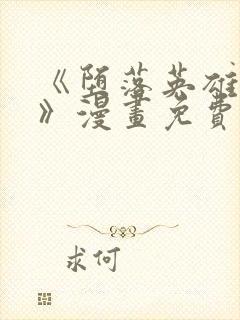 《堕落英雄
》漫畫免費
求何